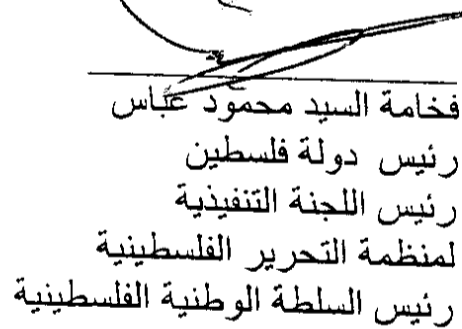 فخامة السيد محمود عباس
رئيس دولة فلسطين
رئيس اللجنة التنفيذية
لمنظمة التحرير الفلسطينية
رئيس السلطة الوطنية الفلسطينية